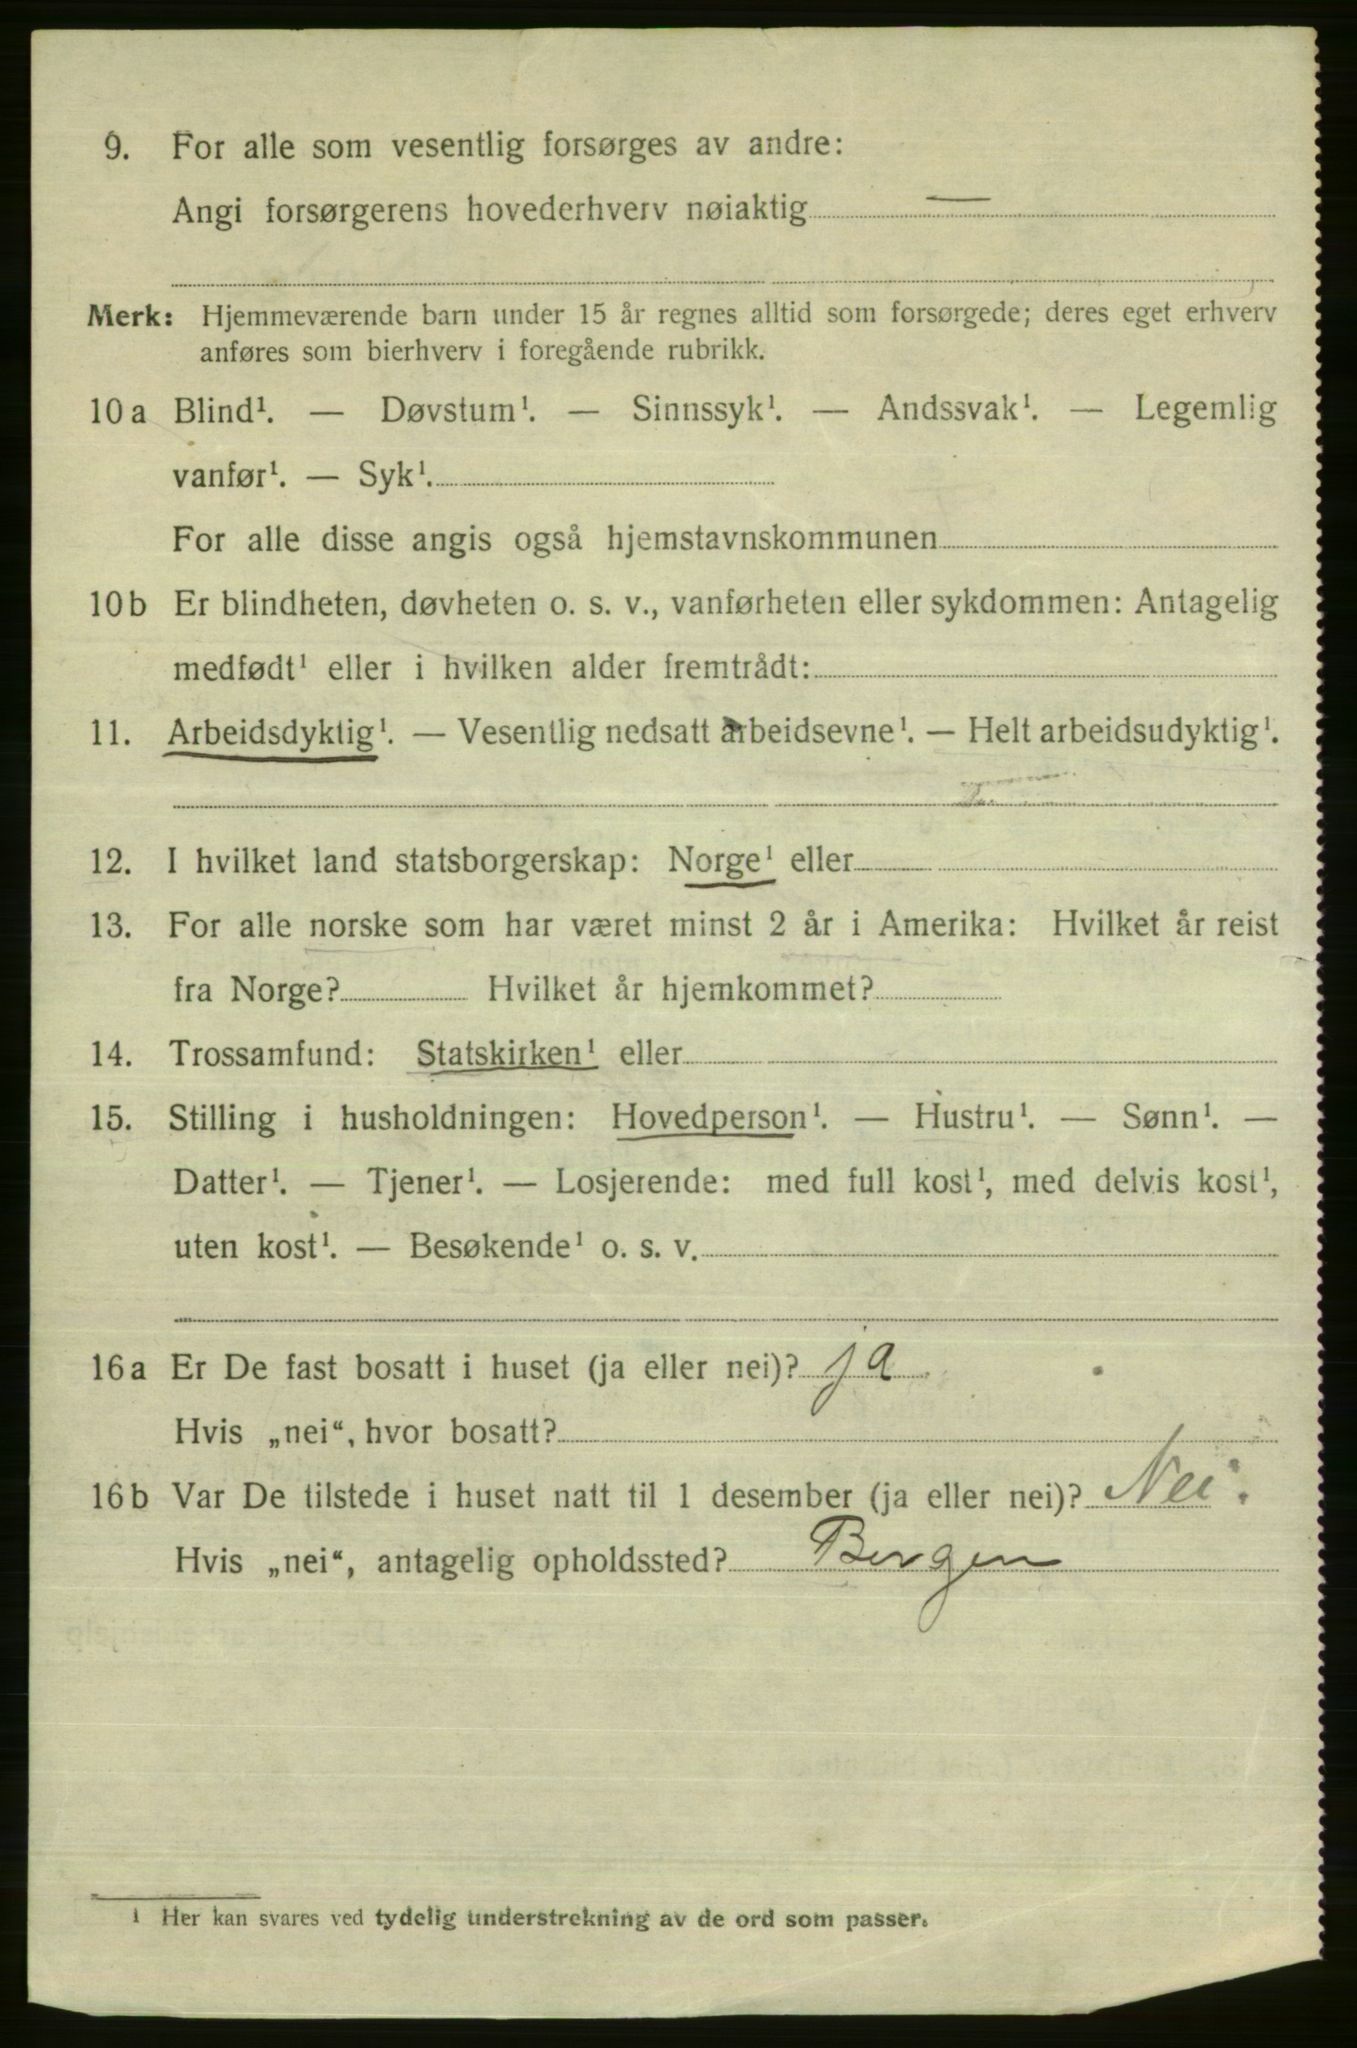 9. For alle som vesentlig forsørges av andre:
Angi forsørgerens hovederhverv nøiaktig —
Merk: Hjemmeværende barn under 15 år regnes alltid som forsørgede; deres eget erhverv
anføres som bierhverv i foregående rubrikk.
10 a Blind¹. — Døvstum¹. — Sinnssyk¹. — Andssvak¹. — Legemlig
vanfør¹. — Syk¹.
For alle disse angis også hjemstavnskommunen
10 b Er blindheten, døvheten o. s. v., vanførheten eller sykdommen: Antagelig
medfødt¹ eller i hvilken alder fremtrådt:
11. Arbeidsdyktig¹. — Vesentlig nedsatt arbeidsevne¹. — Helt arbeidsudyktig¹.
12. I hvilket land statsborgerskap: Norge¹ eller
13. For alle norske som har været minst 2 år i Amerika: Hvilket år reist
fra Norge? Hvilket år hjemkommet?
14. Trossamfund: Statskirken¹ eller
15. Stilling i husholdningen: Hovedperson¹. — Hustru¹. — Sønn¹. —
Datter¹. — Tjener¹. — Losjerende: med full kost¹, med delvis kost¹,
uten kost¹. — Besøkende¹ o. s. v.
16 a Er De fast bosatt i huset (ja eller nei)? ja
Hvis „nei“, hvor bosatt?
16 b Var De tilstede i huset natt til 1 desember (ja eller nei)? Nei.
Hvis „nei“, antagelig opholdssted? Bergen
¹ Her kan svares ved tydelig understrekning av de ord som passer.